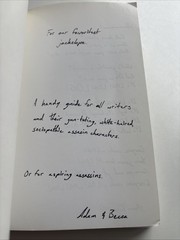 For our favoritest
jackalope.
A handy guide for all writers
and their gun-toting, white-haired,
sociopathic assassin characters.
Or for aspiring assassins.
Adam & Becca